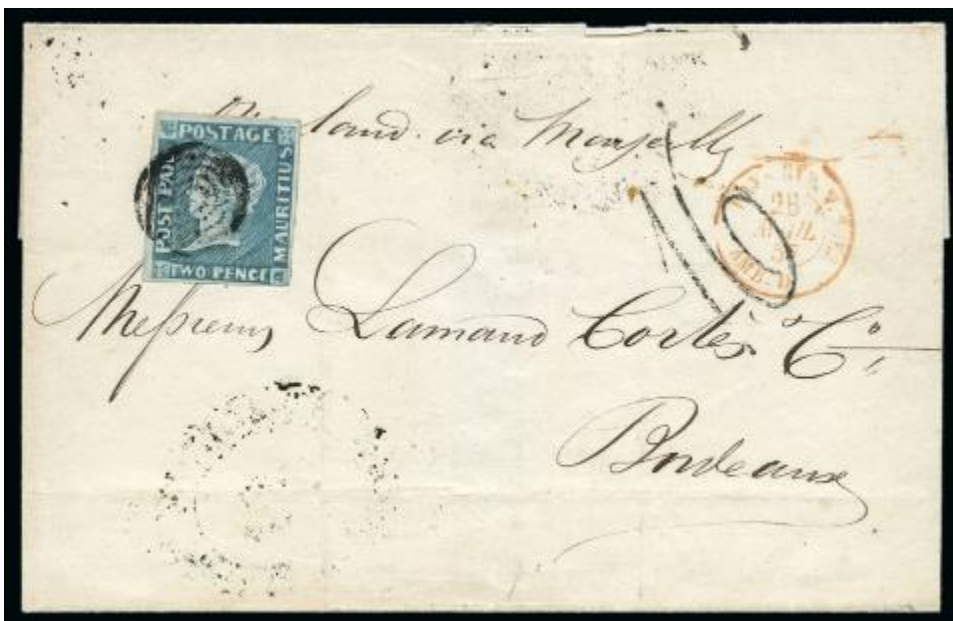 POSTAGE
POST PAID
MAURITIUS
TWO PENCE
land via Marseille
10
28
Messieurs Lamaud Cortès & Co
Bordeaux